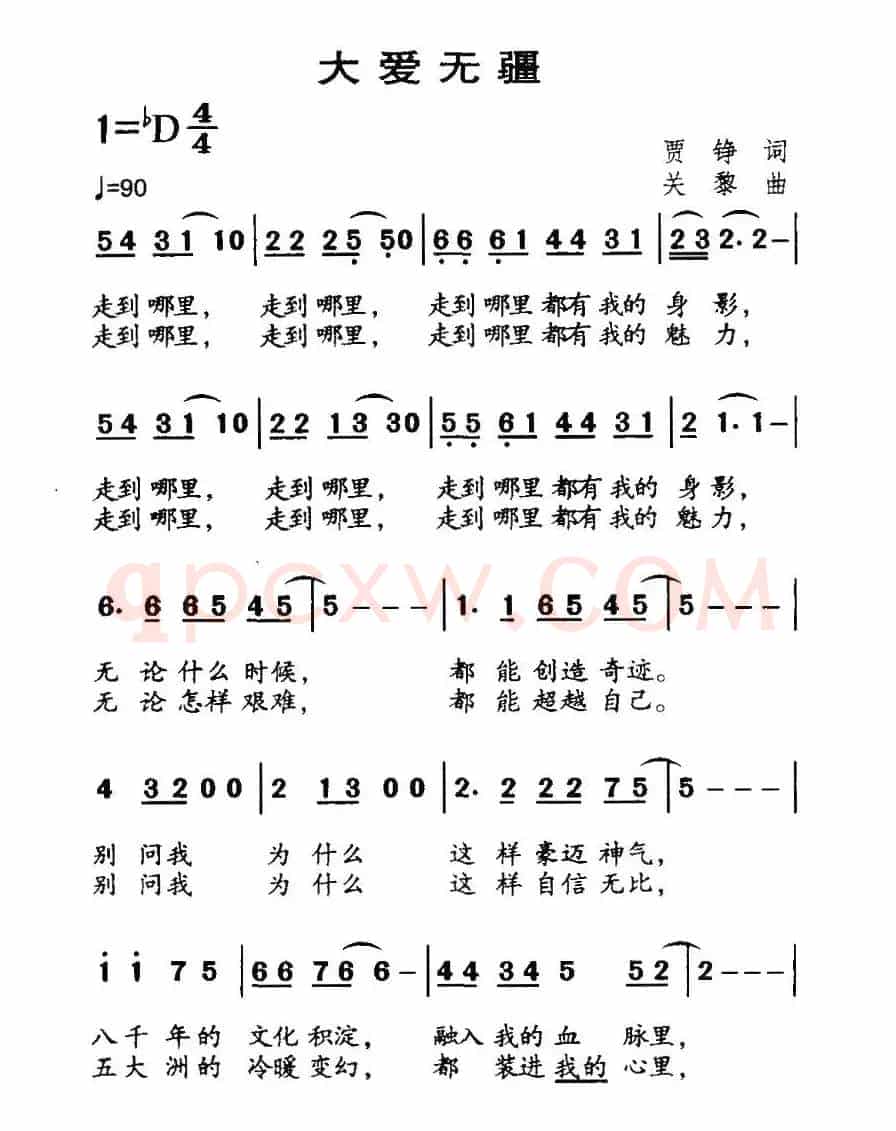 大爱无疆
1=♭D 4/4
贾铮词
♩=90
关黎曲
54 31 10 | 22 25 50 | 66 61 44 31 | 23 2· 2 – |
走到哪里, 走到哪里, 走到哪里都有我的身影,
走到哪里, 走到哪里, 走到哪里都有我的魅力,
54 31 10 | 22 13 30 | 55 61 44 31 | 2 1· 1 – |
走到哪里, 走到哪里, 走到哪里都有我的身影,
走到哪里, 走到哪里, 走到哪里都有我的魅力,
6· 6 65 45 | 5 – – – | 1· 1 65 45 | 5 – – – |
无论什么时候, 都能创造奇迹。
无论怎样艰难, 都能超越自己。
qpcxw.COM
4 32 0 0 | 2 13 0 0 | 2· 2 22 75 | 5 – – – |
别问我 为什么 这样豪迈神气,
别问我 为什么 这样自信无比,
i i 7 5 | 66 76 6 – | 44 34 5 52 | 2 – – – |
八千年的 文化积淀, 融入我的血脉里,
五大洲的 冷暖变幻, 都装进我的心里,